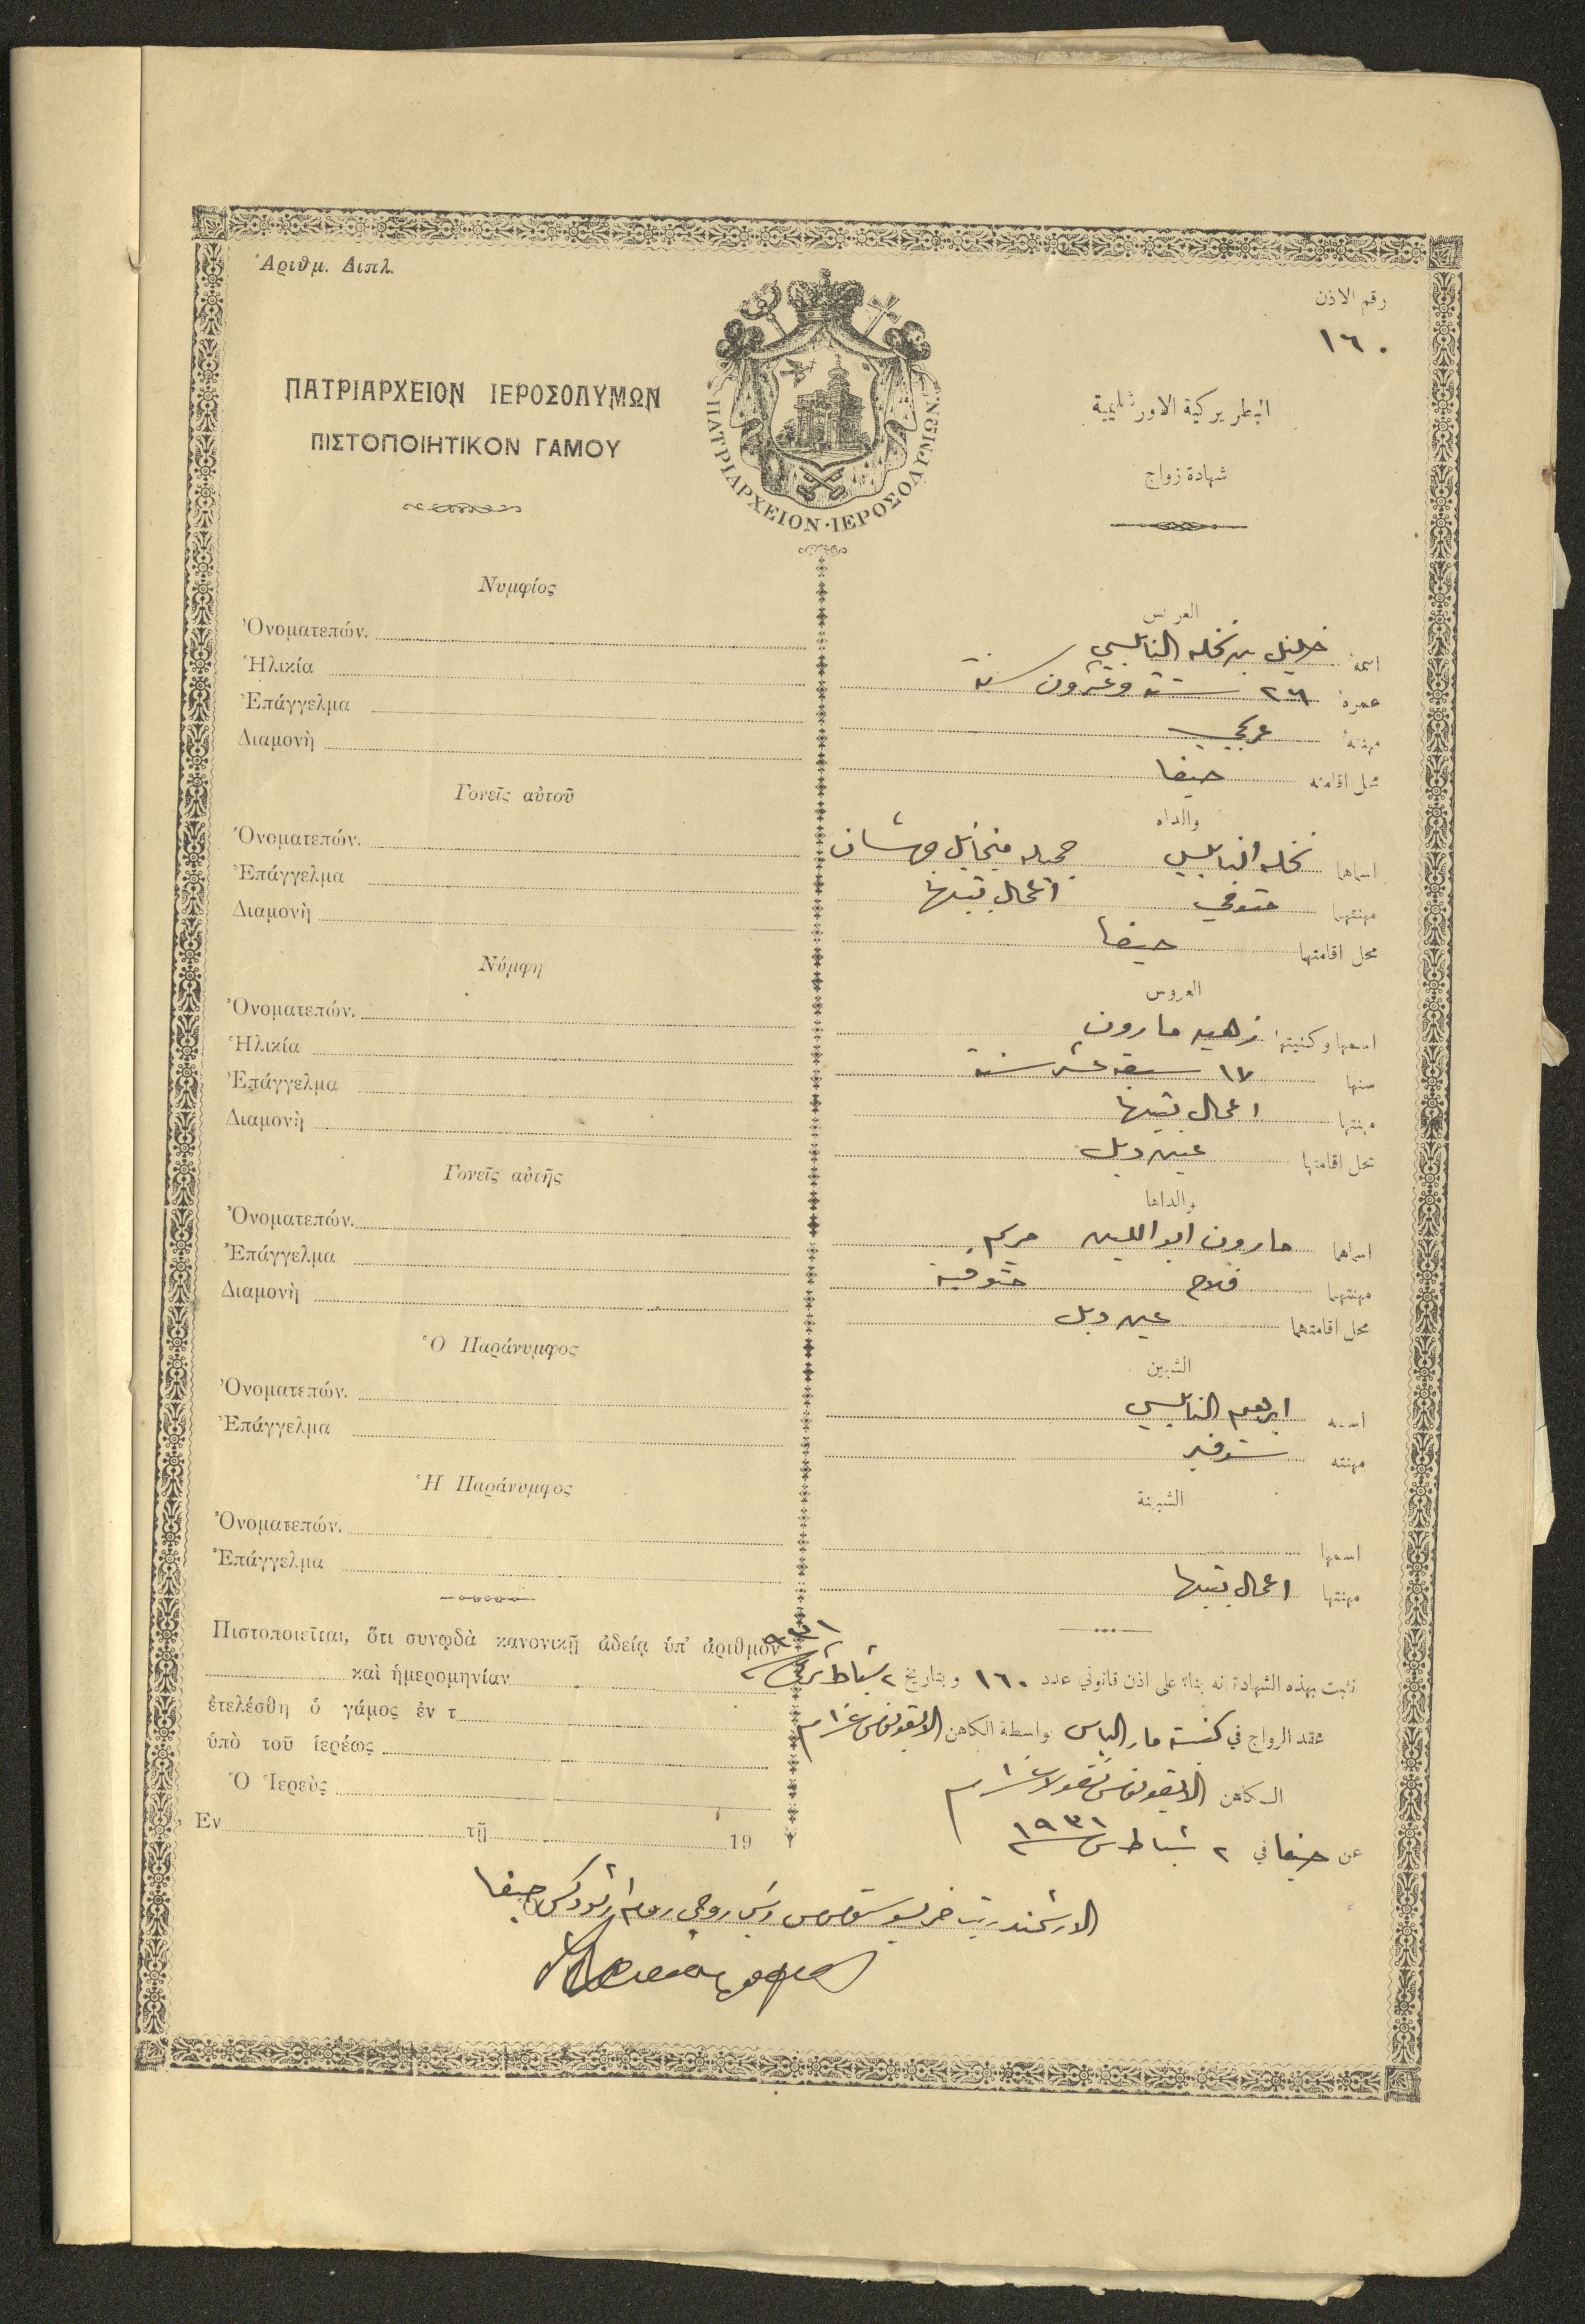 Ἀριθμ. Διπλ.
رقم الاذن
١٦٠
ΠΑΤΡΙΑΡΧΕΙΟΝ ΙΕΡΟΣΟΛΥΜΩΝ
ΠΙΣΤΟΠΟΙΗΤΙΚΟΝ ΓΑΜΟΥ
ΠΑΤΡΙΑΡΧΕΙΟΝ·ΙΕΡΟΣΟΛΥΜΩΝ
البطريركية الاورشليمية
شهادة زواج
Νυμφίος
Ὀνοματεπών.
Ἡλικία
Ἐπάγγελμα
Διαμονὴ
Γονεῖς αὐτοῦ
Ὀνοματεπών.
Ἐπάγγελμα
Διαμονὴ
Νύμφη
Ὀνοματεπών.
Ἡλικία
Ἐπάγγελμα
Διαμονὴ
Γονεῖς αὐτῆς
Ὀνοματεπών.
Ἐπάγγελμα
Διαμονὴ
Ὁ Παράνυμφος
Ὀνοματεπών.
Ἐπάγγελμα
Ἡ Παράνυμφος
Ὀνοματεπών.
Ἐπάγγελμα
Πιστοποιεῖται, ὅτι συνῳδὰ κανονικῇ ἀδείᾳ ὑπ' ἀριθμὸν
καὶ ἡμερομηνίαν
ἐτελέσθη ὁ γάμος ἐν τ
ὑπὸ τοῦ ἱερέως
Ὁ Ἱερεὺς
Ἐν τῇ 19
العريس
اسمه خليل بن نخله النابلسي
عمره ٢٦ ستة وعشرون سنة
مهنته عربجي
محل اقامته حيفا
والداه
اسماهما نخله النابلسي جميله ميخائيل
مهنتهما متوفي اعمال بيتها
محل اقامتهما حيفا
العروس
اسمها وكنيتها زهيه مارون
سنها ١٧ سبعة عشر سنة
مهنتها اعمال بيتها
محل اقامتها عين دبل
والداها
اسماهما مارون ابو اللين مريم
مهنتهما فلاح متوفية
محل اقامتهما عين دبل
الشبين
اسمه ابرهيم النابلسي
مهنته شوفير
الشبينة
اسمها
مهنتها اعمال بيتها
تثبت بهذه الشهادة انه بناء على اذن قانوني عدد ١٦٠ وبتاريخ ٢ شباط سنة ٩٣١
عقد الزواج في كنيسة مار الياس بواسطة الكاهن الايقونومس
الكاهن الايقونومس نقولا
عن حيفا في ٢ شباط سنة ١٩٣١
الارشمندريت خريسوستوموس رئيس روحي روم ارثوذكس حيفا